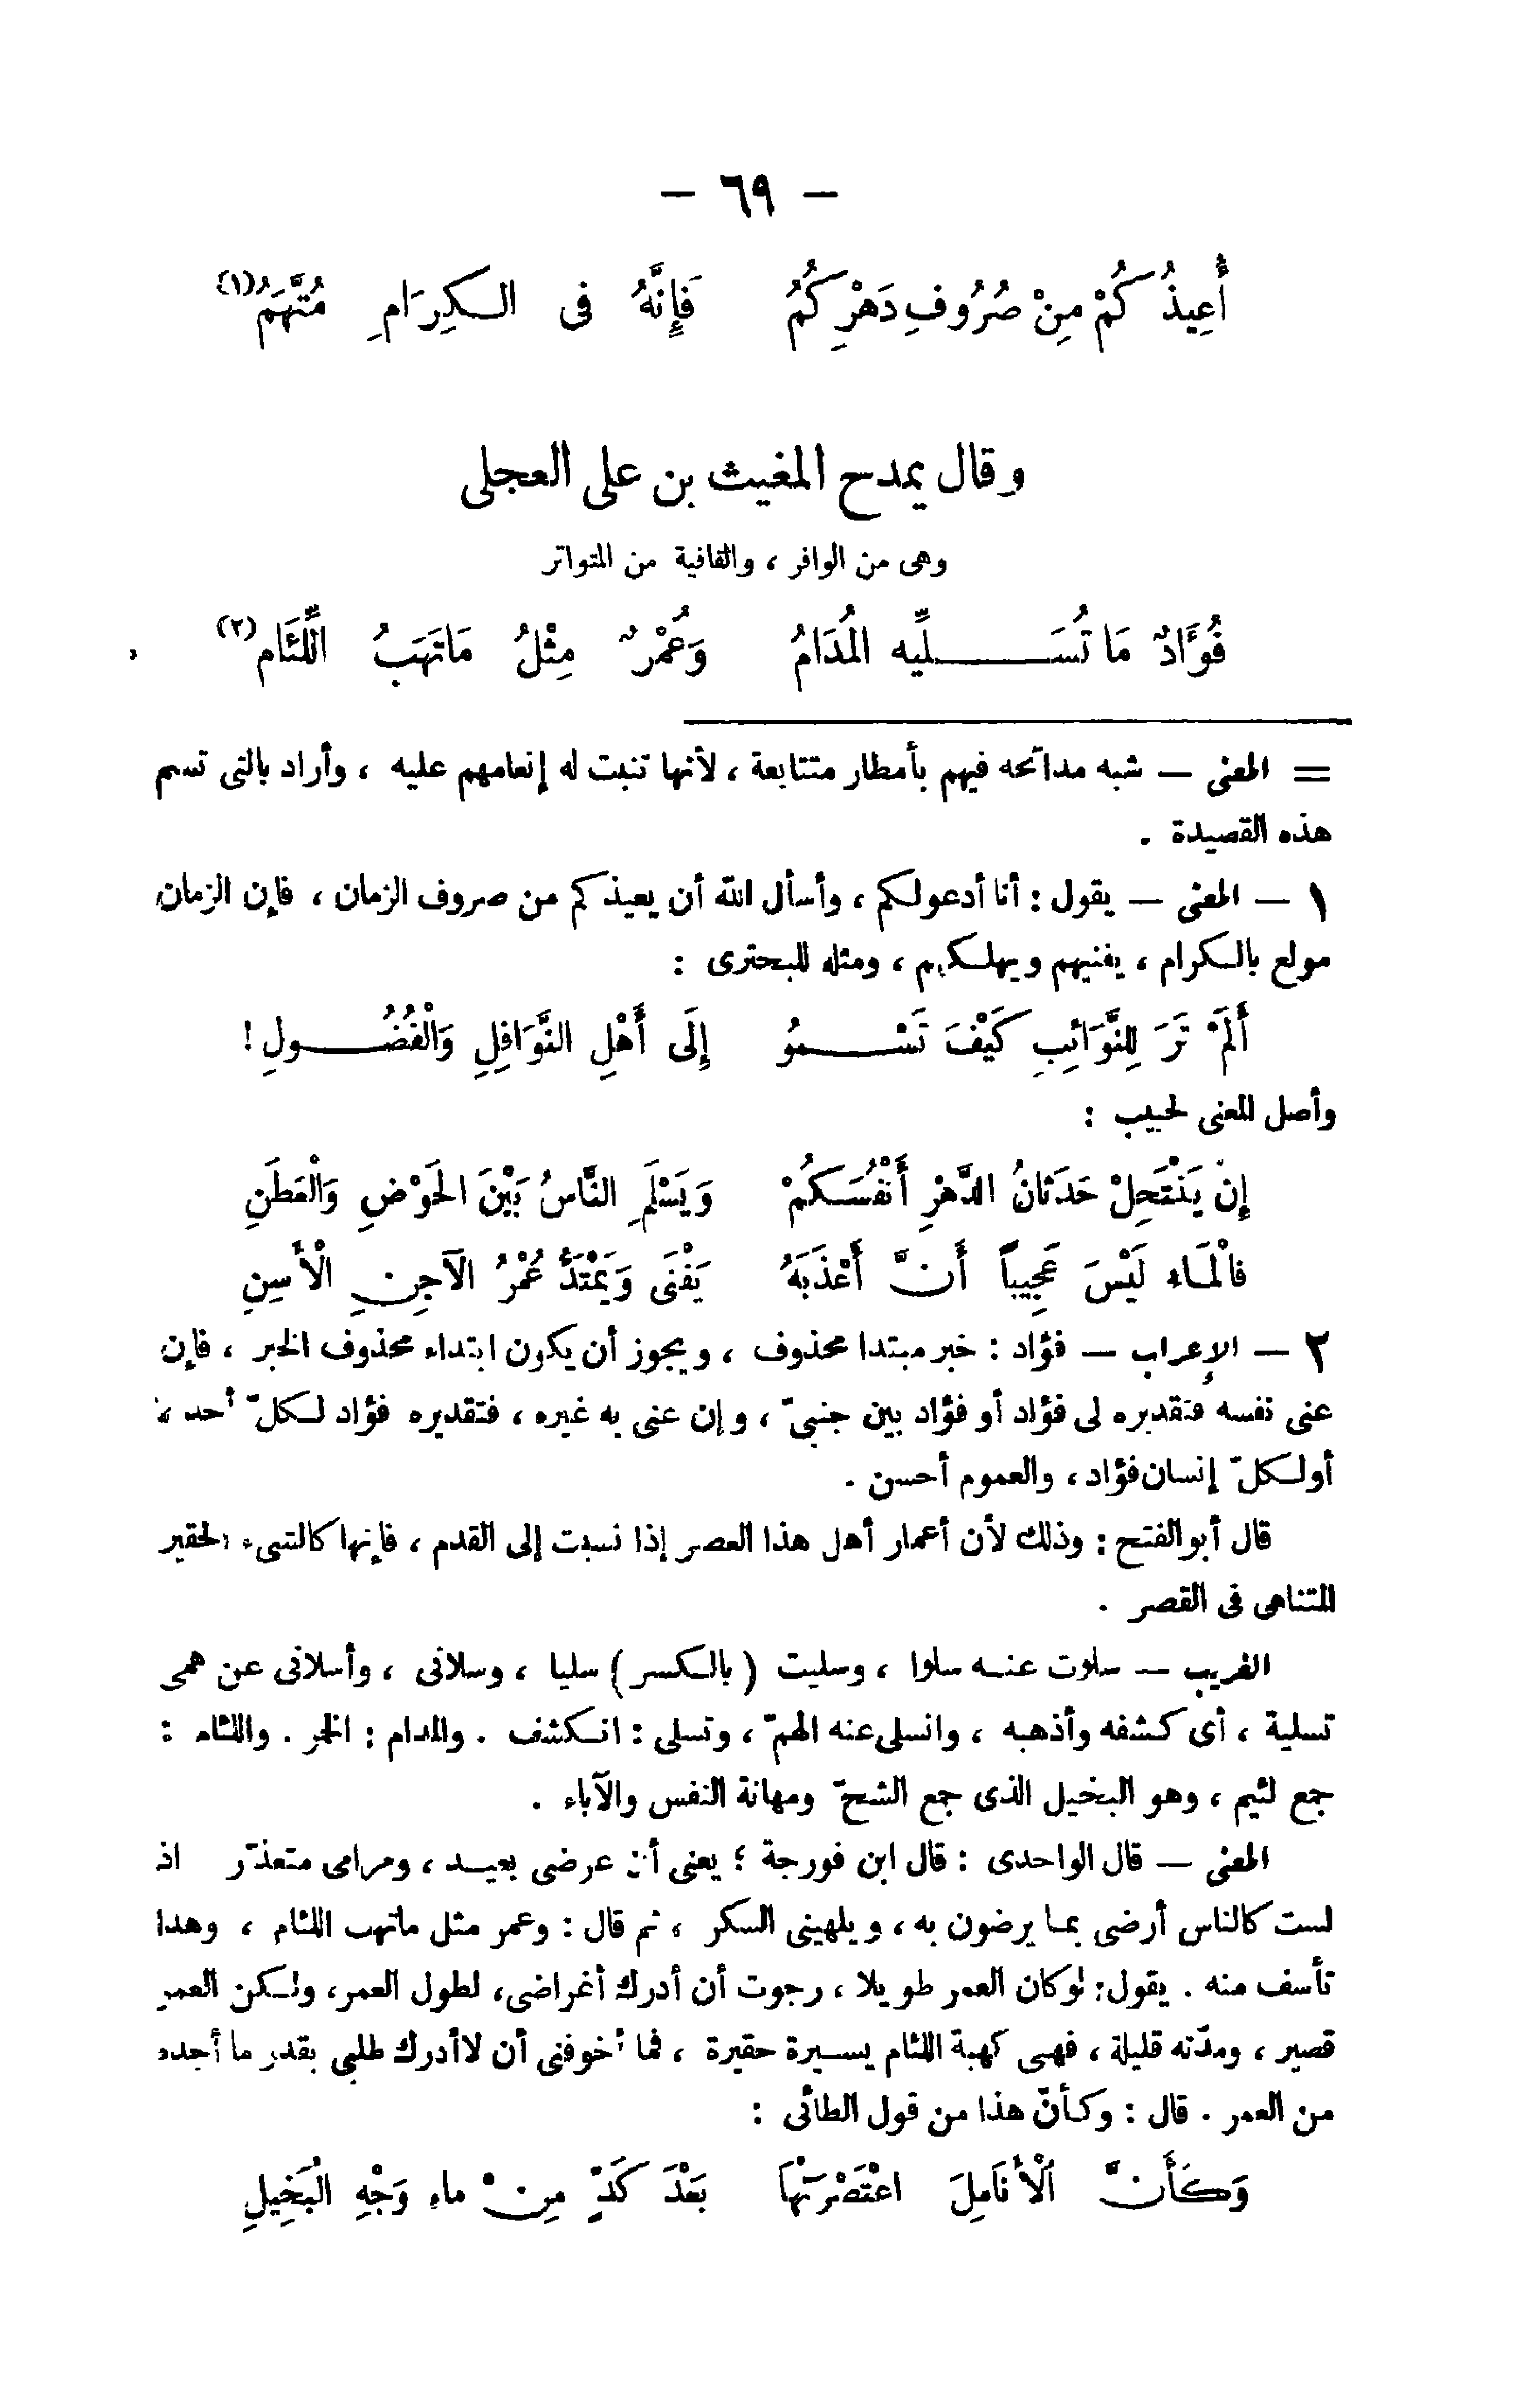 — ٦٩ —
أُعِيذُكُمْ مِنْ صُرُوفِ دَهْرِكُمُ فَإِنَّهُ فى الكِرَامِ مُتَّهَمُ (١)
وقال يمدح المغيث بن على العجلى
وهى من الوافر ، والقافية من المتواتر
فُؤَادٌ مَا تُسَلِّيه المُدَامُ وَعُمْرٌ مِثْلُ مَاتَهَبُ اللِّئَام (٢)
= المعنى — شبه مدائحه فيهم بأمطار متتابعة ، لأنها تنبت له إنعامهم عليه ، وأراد بالتى تسم
هذه القصيدة .
١ — المعنى — يقول : أنا أدعو لكم ، وأسأل الله أن يعيذكم من صروف الزمان ، فإن الزمان
مولع بالكرام ، يفنيهم ويهلكهم ، ومثله للبحترى :
أَلَمْ تَرَ لِلنَّوَائِبِ كَيْفَ تَسْمُو إِلَى أَهْلِ النَّوَافِلِ وَالْفُضُولِ !
وأصل المعنى لحبيب :
إِنْ يَنْتَحِلْ حَدَثَانُ الدَّهْرِ أَنْفُسَكُمْ وَيَسْلَمِ النَّاسُ بَيْنَ الحَوْضِ وَالْعَطَنِ
فَالْمَاء لَيْسَ عَجِيباً أَنَّ أَعْذَبَهُ يَفْنَى وَيَمْتَدُّ عُمْرُ الآجِنِ الْأَسِنِ
٢ — الإعراب — فؤاد : خبر مبتدا محذوف ، ويجوز أن يكون ابتداء محذوف الخبر ، فإن
عنى نفسه فتقديره لى فؤاد أو فؤاد بين جنبىّ ، وإن عنى به غيره ، فتقديره فؤاد لكلّ أحد ،
أولكلّ إنسان فؤاد ، والعموم أحسن .
قال أبو الفتح : وذلك لأن أعمار أهل هذا العصر إذا نسبت إلى القدم ، فإنها كالشىء الحقير
المتناهى فى القصر .
الغريب — سلوت عنه سلوا ، وسليت ( بالكسر ) سليا ، وسلانى ، وأسلانى عن همى
تسلية ، أى كشفه وأذهبه ، وانسلى عنه الهمّ ، وتسلى : انكشف . والمدام : الخمر . واللئام :
جمع لئيم ، وهو البخيل الذى جمع الشحّ ومهانة النفس والآباء .
المعنى — قال الواحدى : قال ابن فورجة ؛ يعنى أن عرضى بعيد ، ومرامى متعذّر اذ
لست كالناس أرضى بما يرضون به ، ويلهينى السكر ، ثم قال : وعمر مثل ماتهب اللئام ، وهذا
تأسف منه . يقول : لوكان العمر طويلا ، رجوت أن أدرك أغراضى ، لطول العمر ، ولكن العمر
قصير ، ومدّته قليلة ، فهى كهبة اللئام يسيرة حقيرة ، فما أخوفنى أن لاأدرك طلبى بقدر ما أجده
من العمر . قال : وكأنّ هذا من قول الطائى :
وَكَأَنَّ الْأَنَامِلَ اعْتَصَرَتْهَا بَعْدَ كَدٍّ مِنْ ماءِ وَجْهِ الْبَخِيلِ